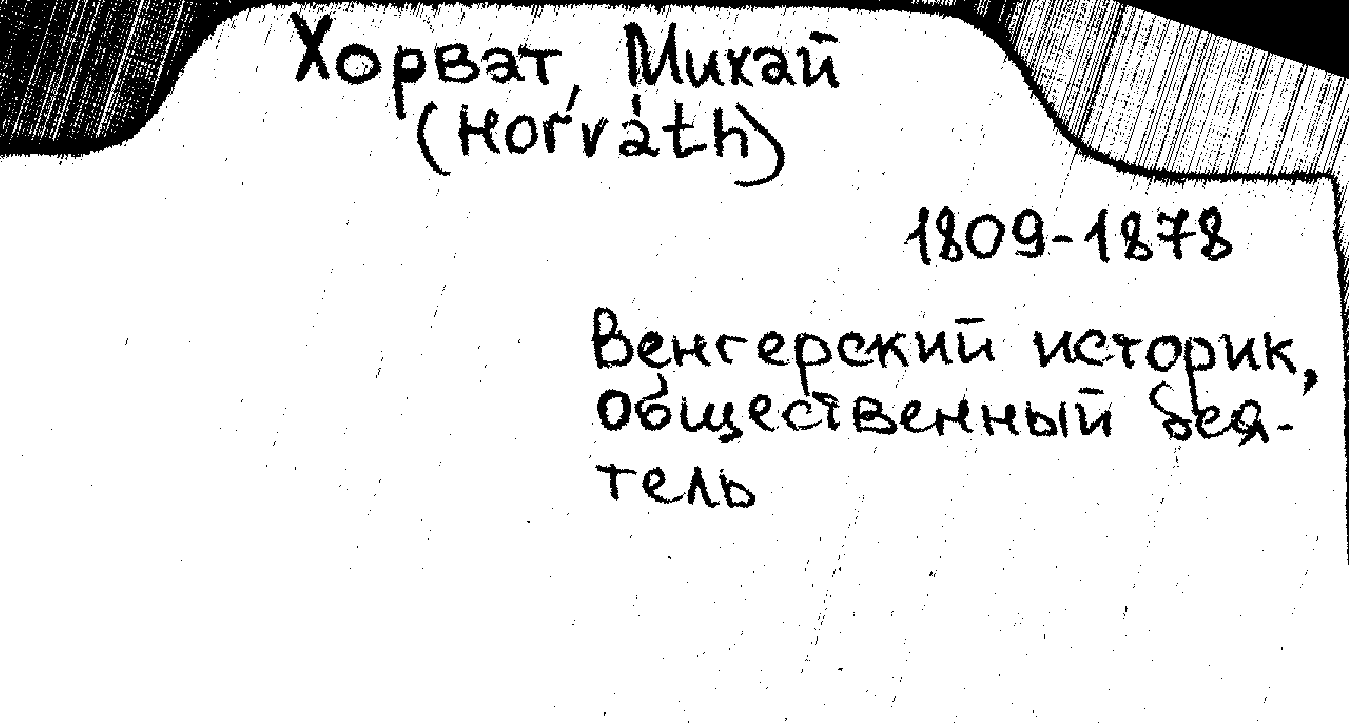 Хорват, Михай
(Horváth)
1809-1878
Венгерский историк,
общественный дея-
тель